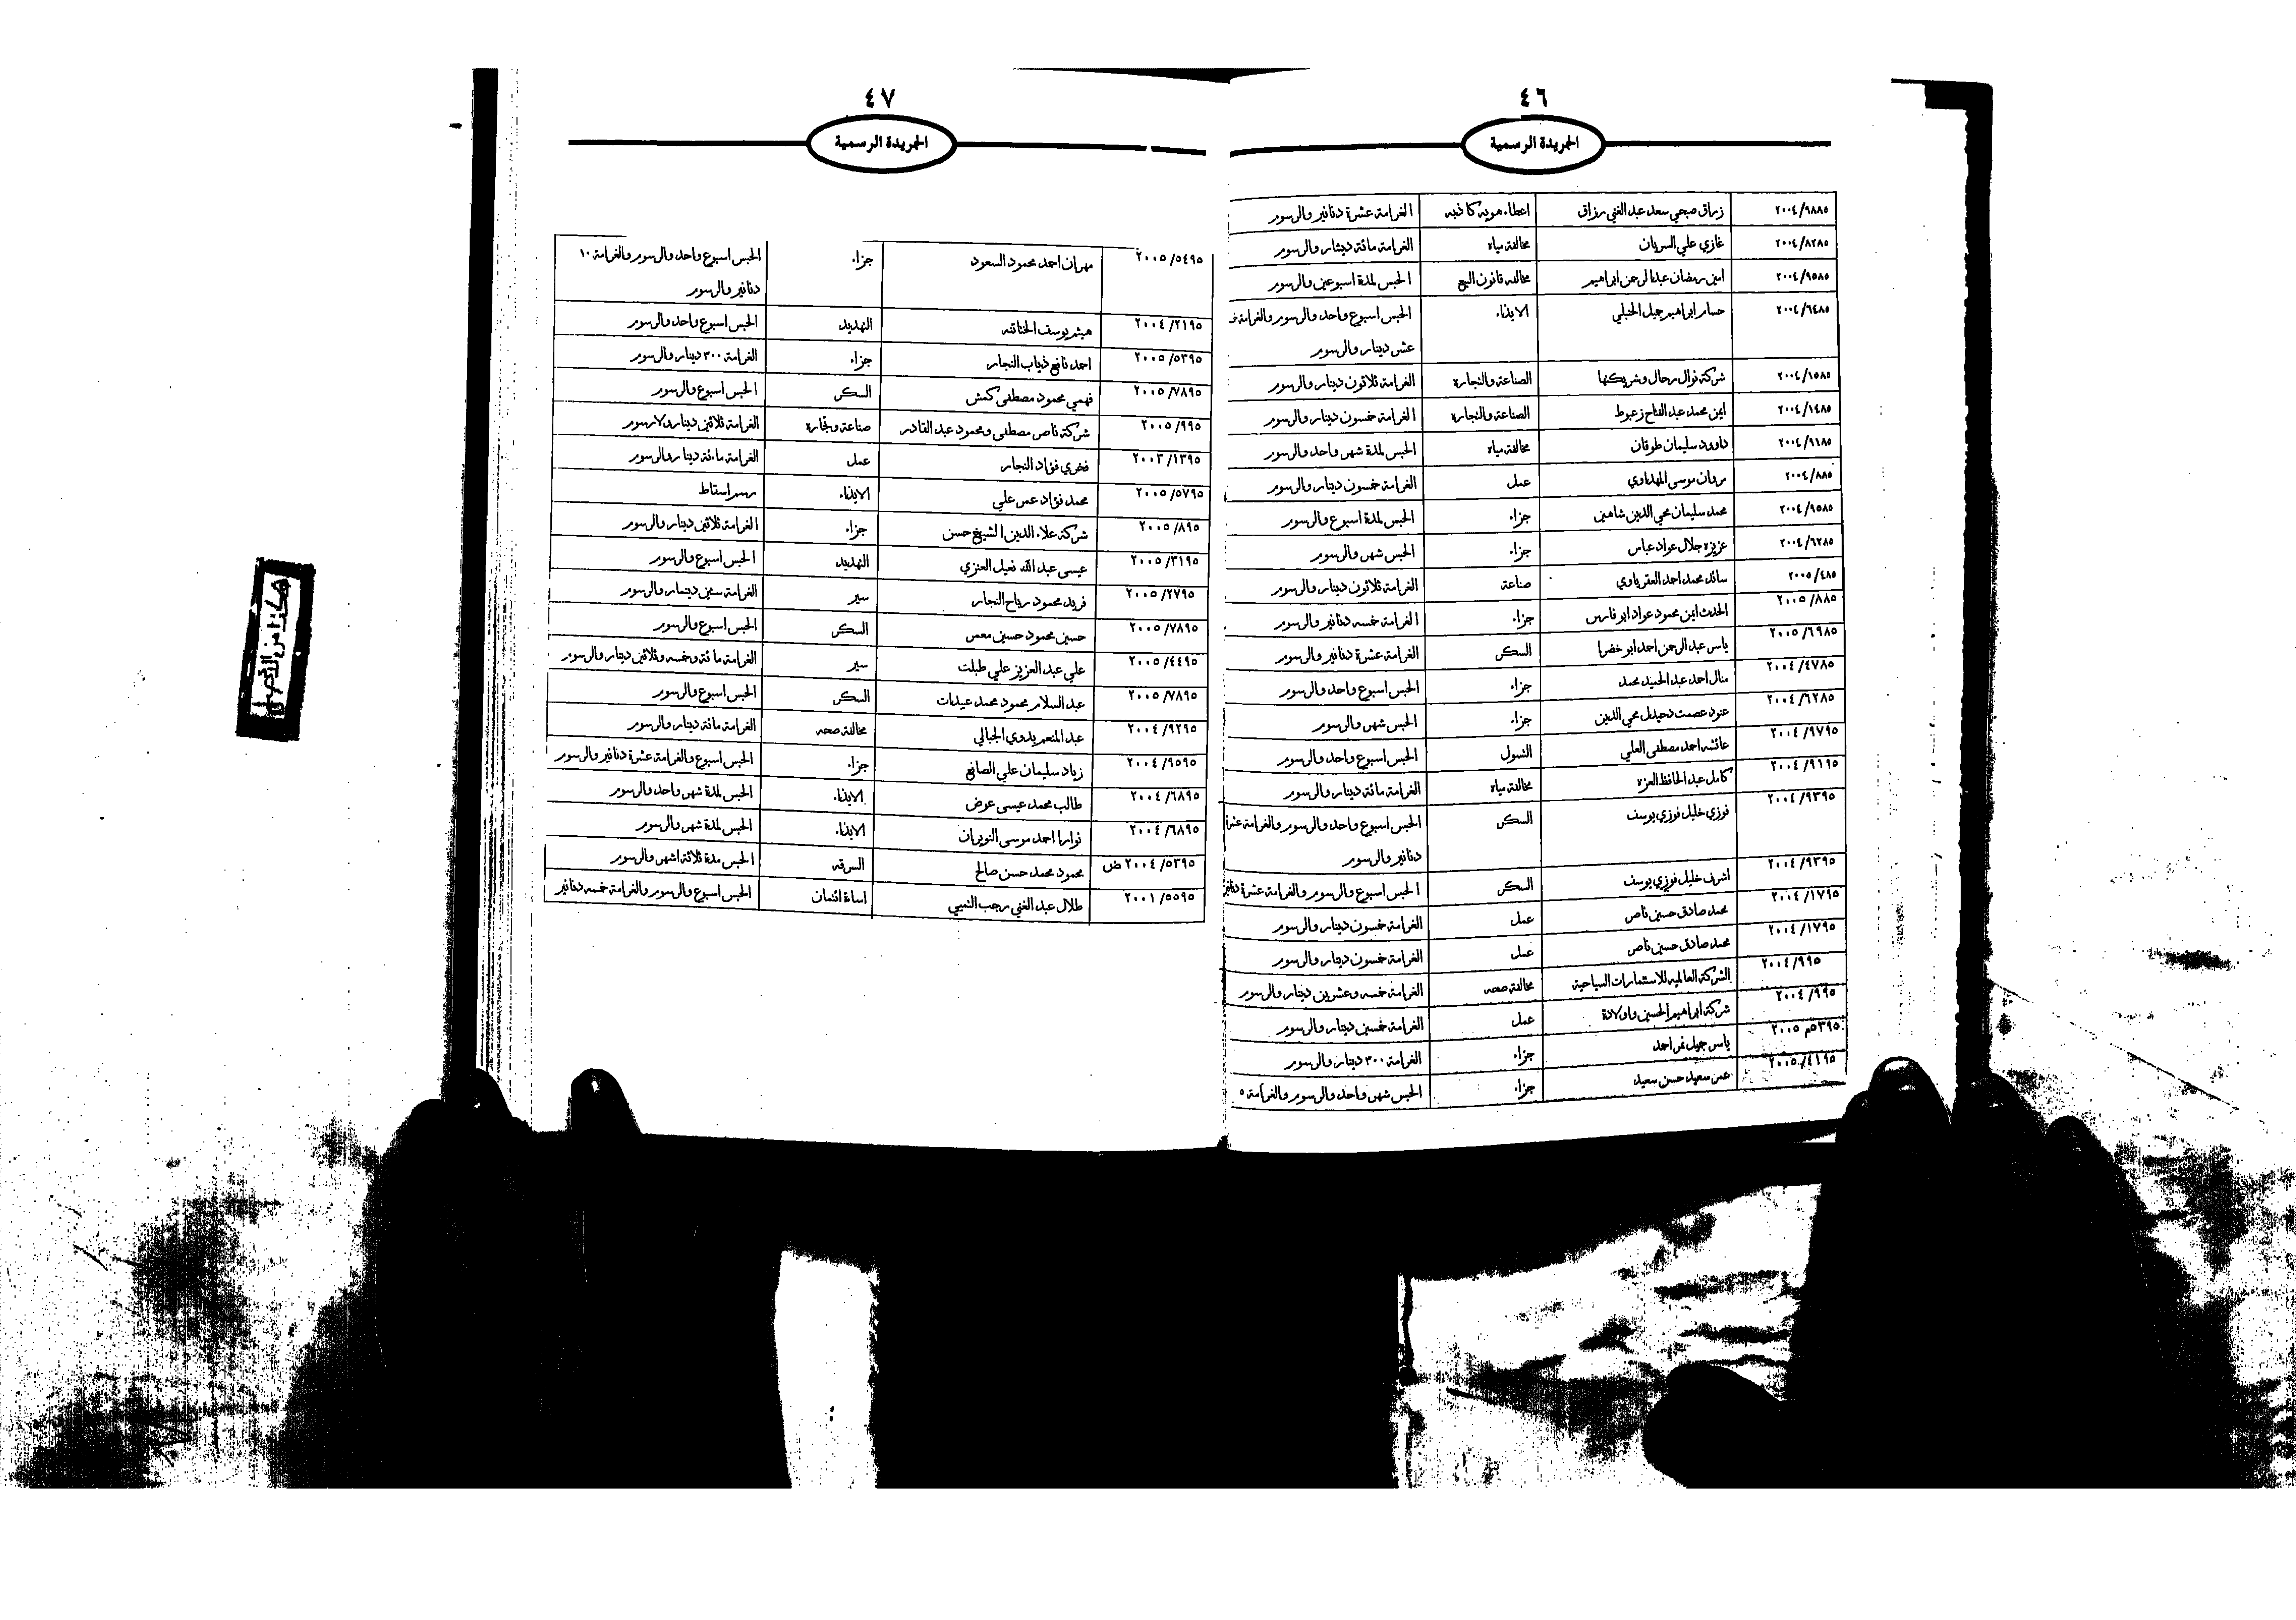 ٤٦
الجريدة الرسمية
٢٠٠٤/٩٨٨٥ زراق صبحي سعد عبد الغني رزاق اعطاء هويه كاذبه الغرامة عشرة دنانير والرسوم
٢٠٠٤/٨٢٨٥ غازي علي السريان مخالفة مياه الغرامة مائة دينار والرسوم
٢٠٠٤/٩٥٨٥ امين رمضان عبدالرحمن ابراهيم مخالفه قانون البيع الحبس لمدة اسبوعين والرسوم
٢٠٠٤/٦٤٨٥ حسام ابراهيم جميل الحنبلي الايذاء الحبس اسبوع واحد والرسوم والغرامة
عشر دينار والرسوم
٢٠٠٤/١٥٨٥ شركة نوال رحال وشريكها الصناعة والتجاره الغرامة ثلاثون دينار والرسوم
٢٠٠٤/١٤٨٥ ايمن محمد عبد الفتاح زعبوط الصناعة والتجاره الغرامة خمسون دينار والرسوم
٢٠٠٤/٩١٨٥ داوود سليمان طوقان مخالفة مياه الحبس لمدة شهر واحد والرسوم
٢٠٠٤/٨٨٥ مروان موسى المهداوي عمل الغرامة خمسون دينار والرسوم
٢٠٠٤/٩٥٨٥ محمد سليمان محي الدين شاهين جزاء الحبس لمدة اسبوع والرسوم
٢٠٠٤/٦٢٨٥ عزيزه جلال عواد عباس جزاء الحبس شهر والرسوم
٢٠٠٥/٤٨٥ سائد محمد احمد العقرباوي صناعة الغرامة ثلاثون دينار والرسوم
٢٠٠٥/٨٨٥ الحدث ايمن محمود عواد ابو فارس جزاء الغرامة خمسه دنانير والرسوم
٢٠٠٥/٦٩٨٥ ياسر عبد الرحمن احمد ابو خضرا السكر الغرامة عشرة دنانير والرسوم
٢٠٠٤/٤٧٨٥ منال احمد عبد الحميد محمد جزاء الحبس اسبوع واحد والرسوم
٢٠٠٤/٦٢٨٥ عنود عصمت دحيدل محي الدين جزاء الحبس شهر والرسوم
٢٠٠٤/٩٧٩٥ عائشه احمد مصطفى العلي التسول الحبس اسبوع واحد والرسوم
٢٠٠٤/٩١٩٥ كامل عبد الحافظ العزه مخالفة مياه الغرامة مائة دينار والرسوم
٢٠٠٤/٩٣٩٥ فوزي خليل فوزي يوسف السكر الحبس اسبوع واحد والرسوم والغرامة عشرة
دنانير والرسوم
٢٠٠٤/٩٣٩٥ اشرف خليل فوزي يوسف السكر الحبس اسبوع والرسوم والغرامة عشرة دنانير
٢٠٠٤/١٧٩٥ محمد صادق حسين ناصر عمل الغرامة خمسون دينار والرسوم
٢٠٠٤/١٧٩٥ محمد صادق حسين ناصر عمل الغرامة خمسون دينار والرسوم
٢٠٠٤/٩٩٥ الشركة العالمية للاستثمارات السياحية مخالفة صحه الغرامة خمسه وعشرين دينار والرسوم
٢٠٠٤/٩٩٥ شركة ابراهيم الحسين واولادة عمل الغرامة خمسين دينار والرسوم
٥٣٩٥م ٢٠٠٥ ياسر جميل نمر احمد جزاء الغرامة ٣٠٠ دينار والرسوم
٢٠٠٥/٤١٩٥ عمر سعيد حسن سعيد جزاء الحبس شهر واحد والرسوم والغرامة ٥
٤٧
الجريدة الرسمية
٢٠٠٥/٥٤٩٥ مهران احمد محمود السعود جزاء الحبس اسبوع واحد والرسوم والغرامة ١٠
دنانير والرسوم
٢٠٠٤/٢١٩٥ هيثم يوسف الختاتنه التهديد الحبس اسبوع واحد والرسوم
٢٠٠٥/٥٣٩٥ احمد نافع ذياب النجار جزاء الغرامة ٣٠٠ دينار والرسوم
٢٠٠٥/٧٨٩٥ فهمي محمود مصطفى كمش السكر الحبس اسبوع والرسوم
٢٠٠٥/٩٩٥ شركة ناصر مصطفى ومحمود عبد القادر صناعة وتجارة الغرامة ثلاثين دينار ولارسوم
٢٠٠٣/١٣٩٥ فخري فؤاد النجار عمل الغرامة مائة دينار والرسوم
٢٠٠٥/٥٧٩٥ محمد فؤاد عمر علي الايذاء رسم اسقاط
٢٠٠٥/٨٩٥ شركة علاء الدين الشيخ حسن جزاء الغرامة ثلاثين دينار والرسوم
٢٠٠٥/٣١٩٥ عيسى عبد الله نعيل العنزي التهديد الحبس اسبوع والرسوم
٢٠٠٥/٢٧٩٥ فريد محمود رباح النجار سير الغرامة ستين دينار والرسوم
٢٠٠٥/٧٨٩٥ حسين محمود حسين معمر السكر الحبس اسبوع والرسوم
٢٠٠٥/٤٤٩٥ علي عبد العزيز علي طبلت سير الغرامة مائة وخمسه وثلاثين دينار والرسوم
٢٠٠٥/٧٨٩٥ عبد السلام محمود محمد عبيدات السكر الحبس اسبوع والرسوم
٢٠٠٤/٩٢٩٥ عبد المنعم بدوي الجبالي مخالفة صحه الغرامة مائة دينار والرسوم
٢٠٠٤/٩٥٩٥ زياد سليمان علي الصانع جزاء الحبس اسبوع والغرامة عشرة دنانير والرسوم
٢٠٠٤/٦٨٩٥ طالب محمد عيسى عوض الايذاء الحبس لمدة شهر واحد والرسوم
٢٠٠٤/٦٨٩٥ نوارا احمد موسى النويران الايذاء الحبس لمدة شهر والرسوم
٢٠٠٤/٥٣٩٥ ض محمود محمد حسن صالح السرقه الحبس مدة ثلاثة اشهر والرسوم
٢٠٠١/٥٥٩٥ طلال عبد الغني رجب النميي اساءة ائتمان الحبس اسبوع والرسوم والغرامة خمسه دنانير
هكذا من الأصل